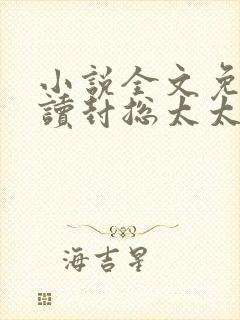 小説全文免
讀封總太太
海吉星